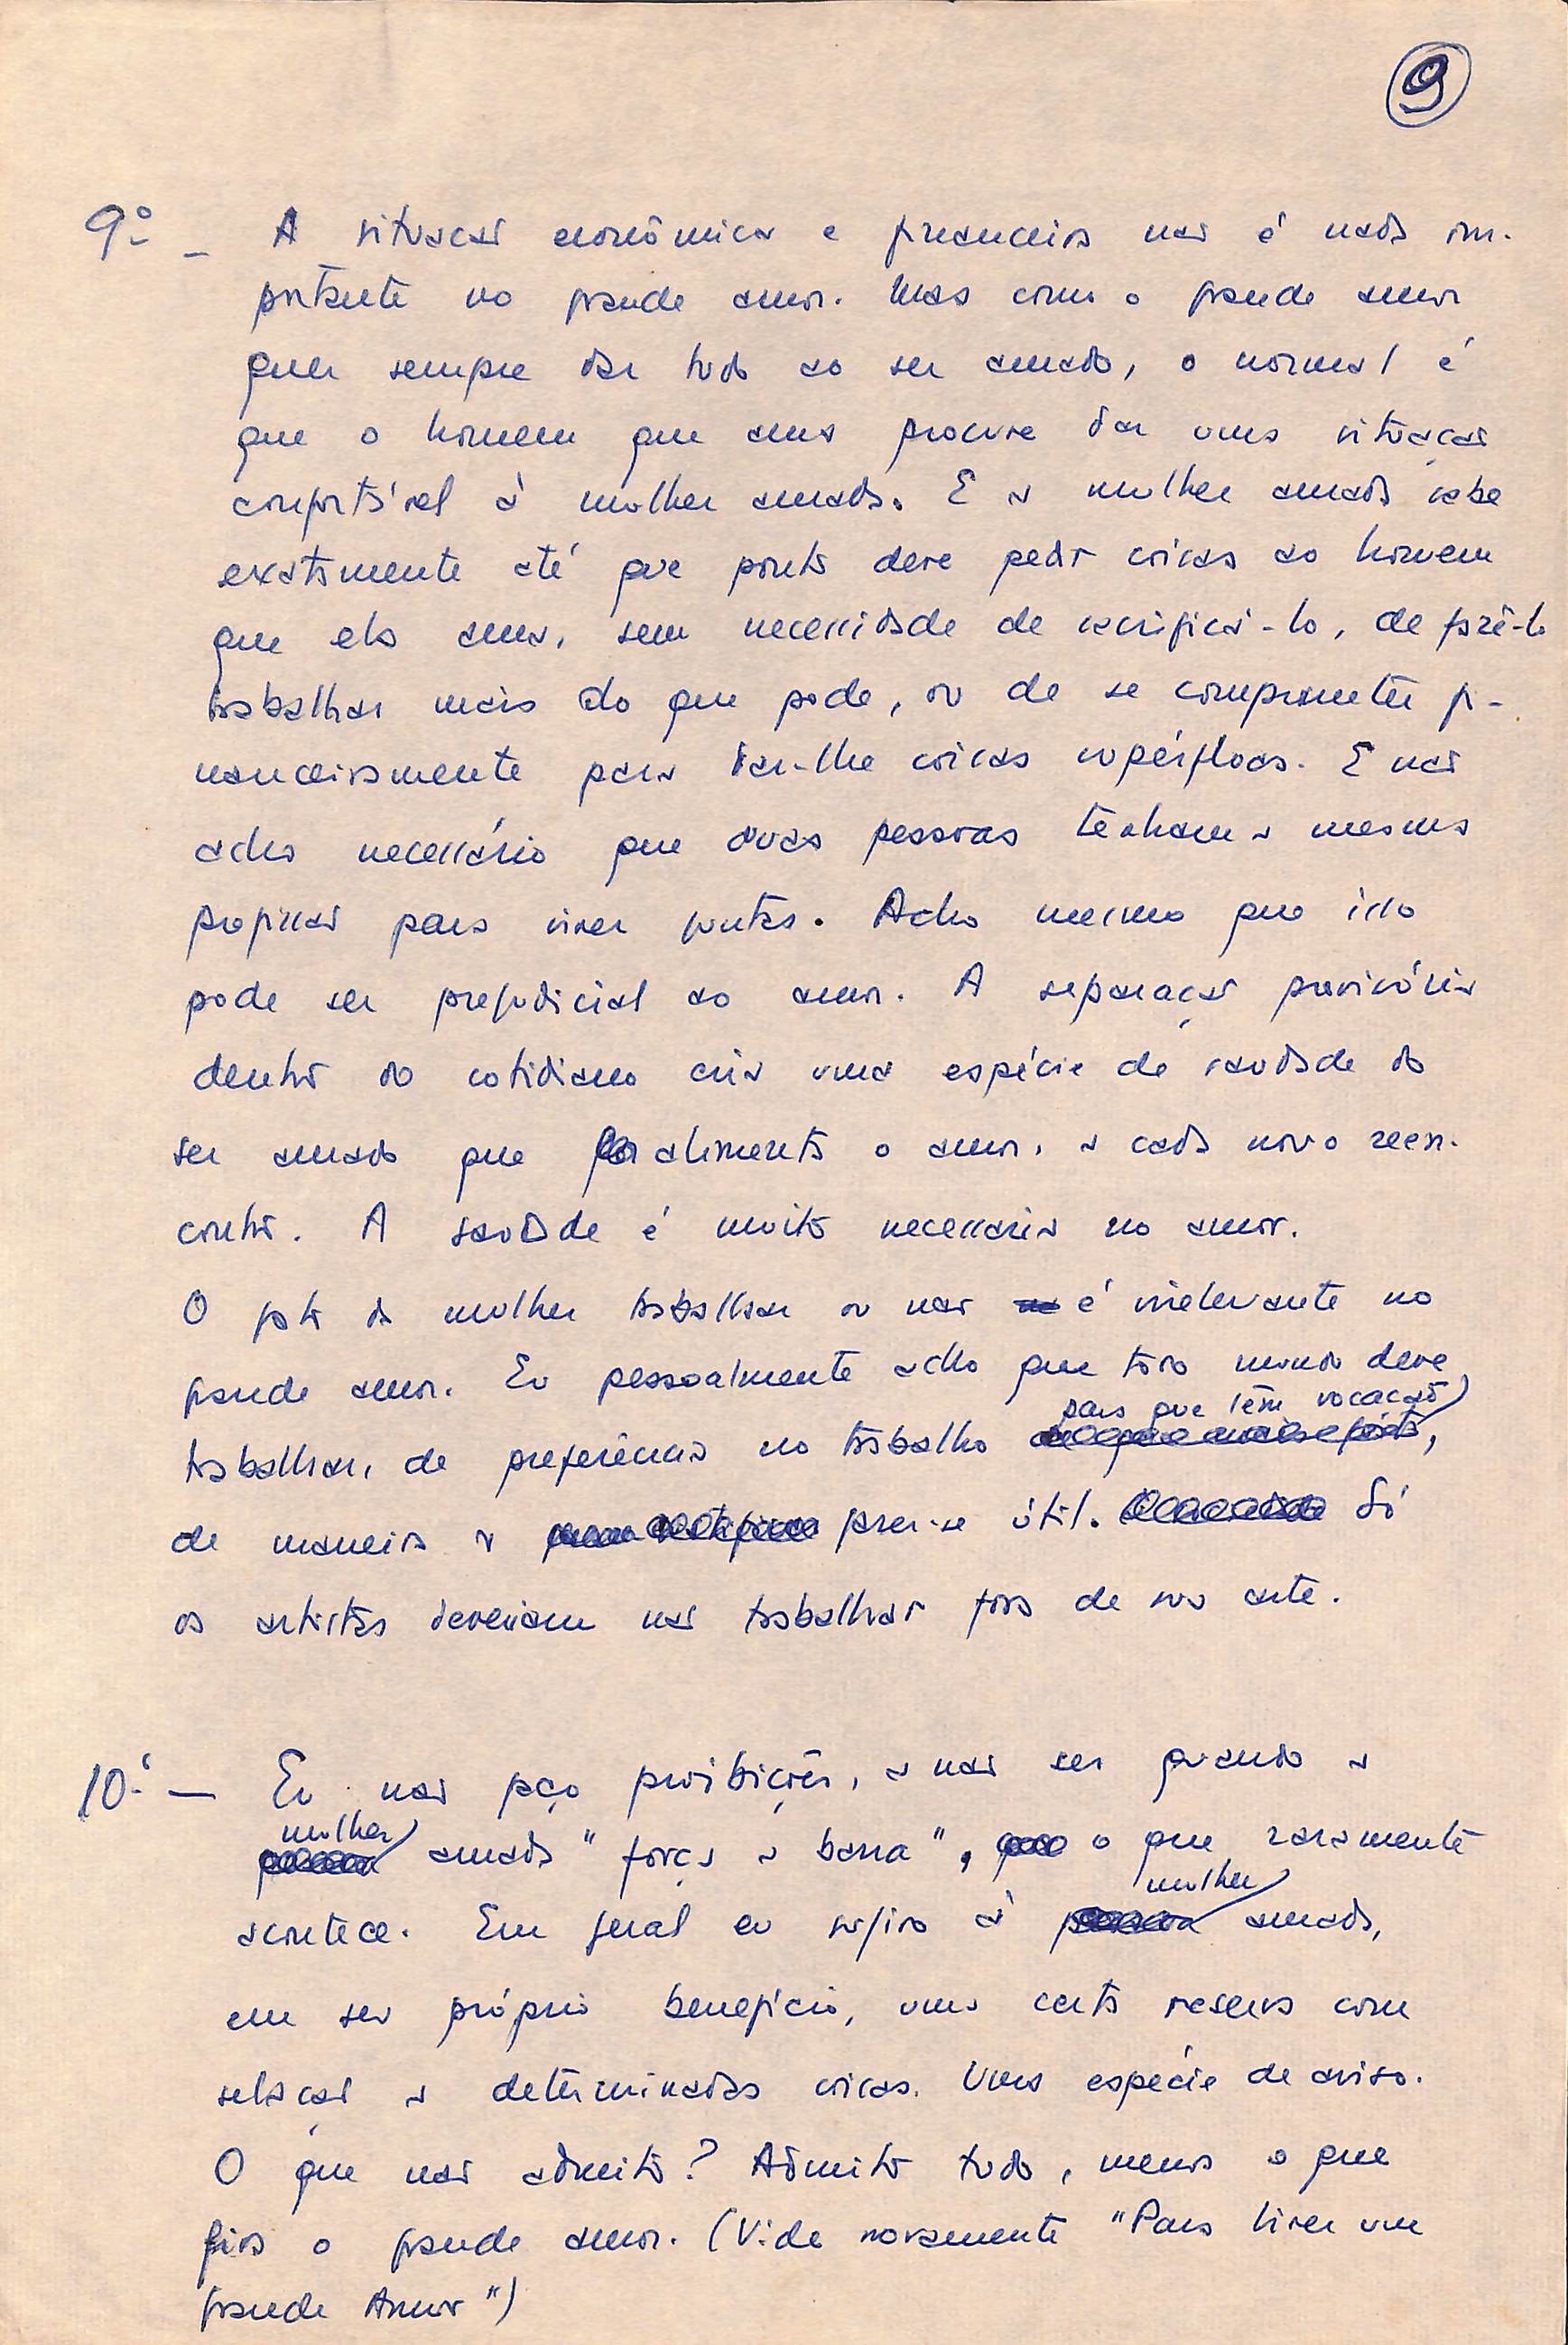 9
9º - A situação econômica e financeira não é nada im-
portante no grande amor. Mas como o grande amor
quer sempre dar tudo ao ser amado, o normal é
que o homem que ama procure dar uma situação
confortável à mulher amada. E a mulher amada sabe
exatamente até que ponto deve pedir coisas ao homem
que ela ama, sem necessidade de sacrificá-lo, de fazê-lo
trabalhar mais do que pode, ou de se comprometer fi-
nanceiramente para dar-lhe coisas supérfluas. E não
acho necessário que duas pessoas tenham a mesma
profissão para viver juntas. Acho mesmo que isso
pode ser prejudicial ao amor. A separação provisória
dentro do cotidiano cria uma espécie de saudade do
ser amado que alimenta o amor, a cada novo reen-
contro. A saudade é muito necessaria no amor.
O fato da mulher trabalhar ou não é irrelevante no
grande amor. Eu pessoalmente acho que todo mundo deve
para que têm vocação
trabalhar, de preferência no trabalho ,
de maneira a fazer-se útil. Só
os artistas deveriam não trabalhar fora de sua arte.
10º - Eu não faço proibições, a não ser quando a
mulher
amada "força a barra", o que raramente
mulher
acontece. Em geral eu sugiro à amada,
em seu próprio benefício, uma certa reserva com
relação a determinadas coisas. Uma espécie de aviso.
O que não admito? Admito tudo, menos o que
fira o grande amor. (Vide novamente "Para Viver um
grande Amor")